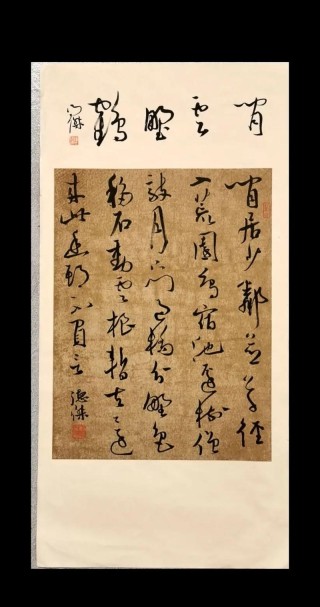 閒雲野鶴
閒居少鄰並草徑
入荒園鳥宿池邊樹僧
敲月下門過橋分野色
移石動雲根暫去還
來此幽期不負言 德傑